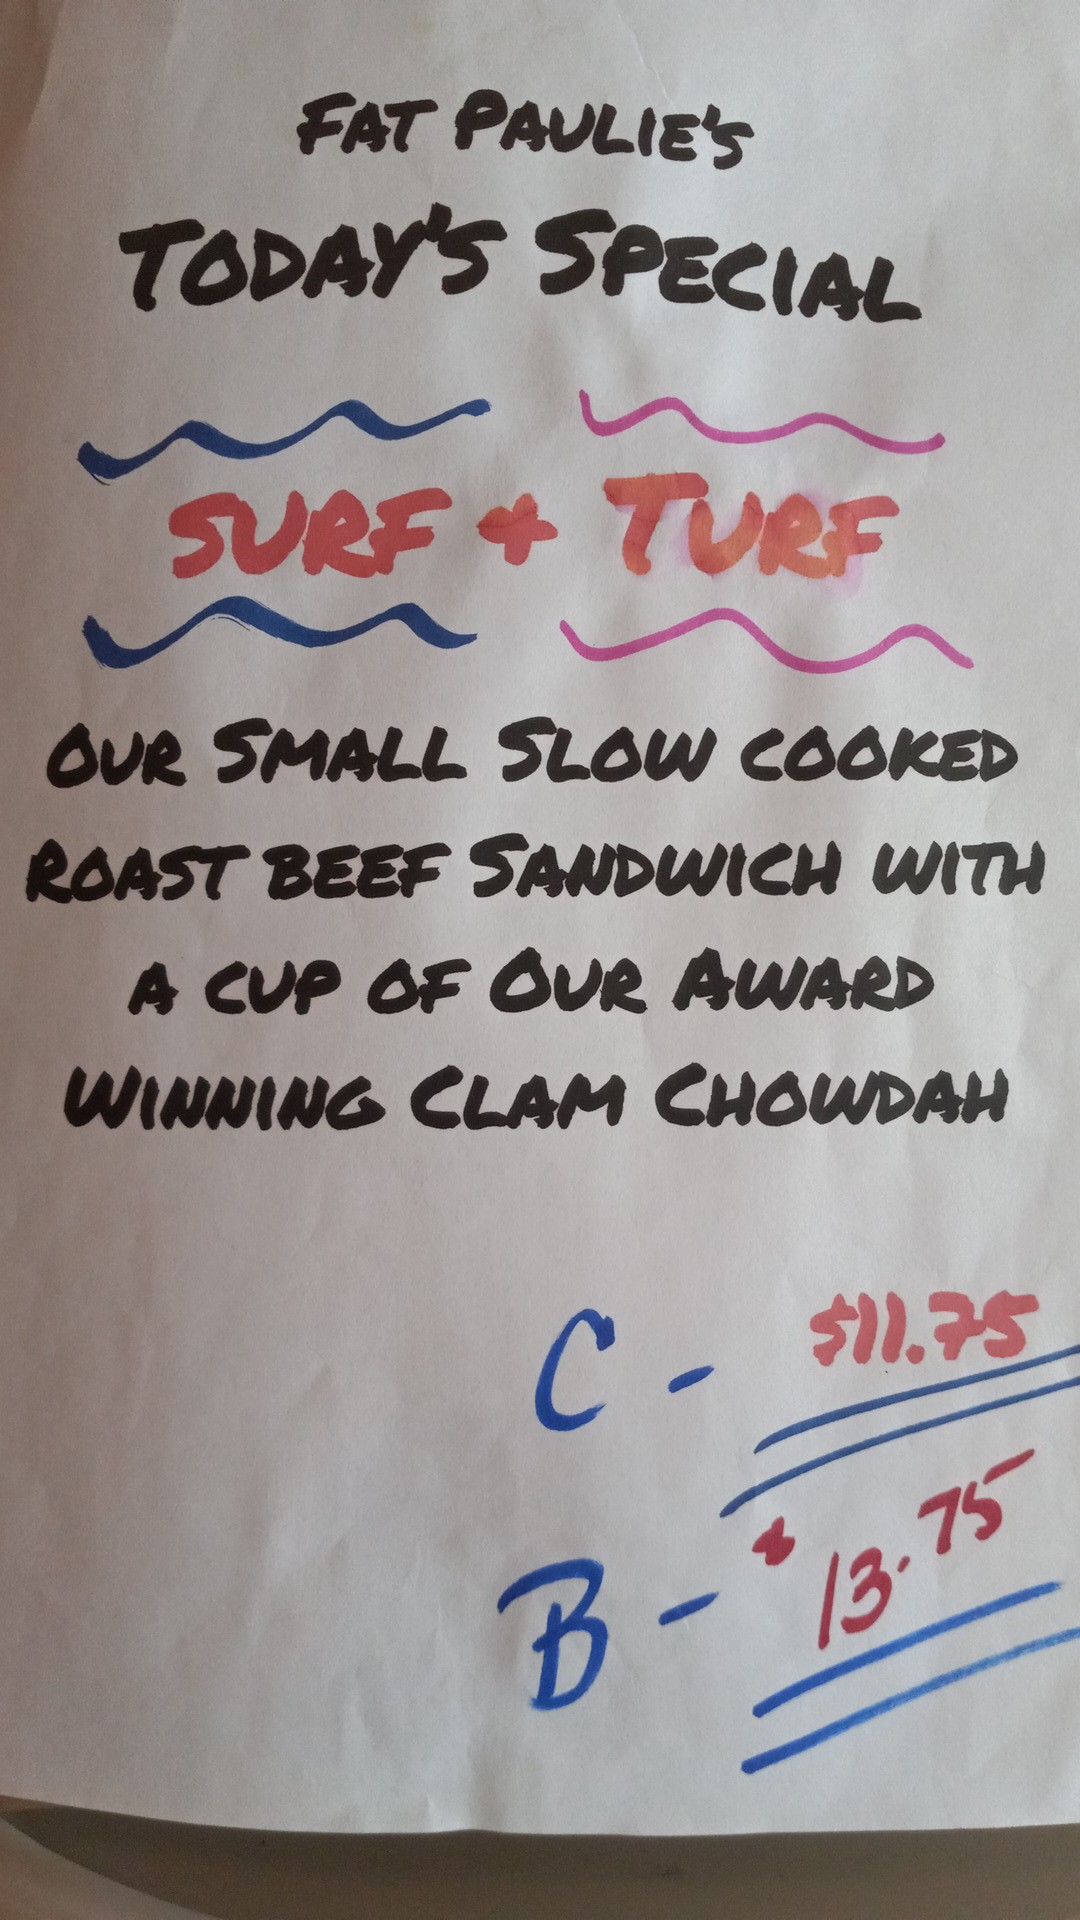 FAT PAULIE'S
TODAY'S SPECIAL
SURF & TURF
OUR SMALL SLOW COOKED
ROAST BEEF SANDWICH WITH
A CUP OF OUR AWARD
WINNING CLAM CHOWDAH
C - $11.75
B - $13.75